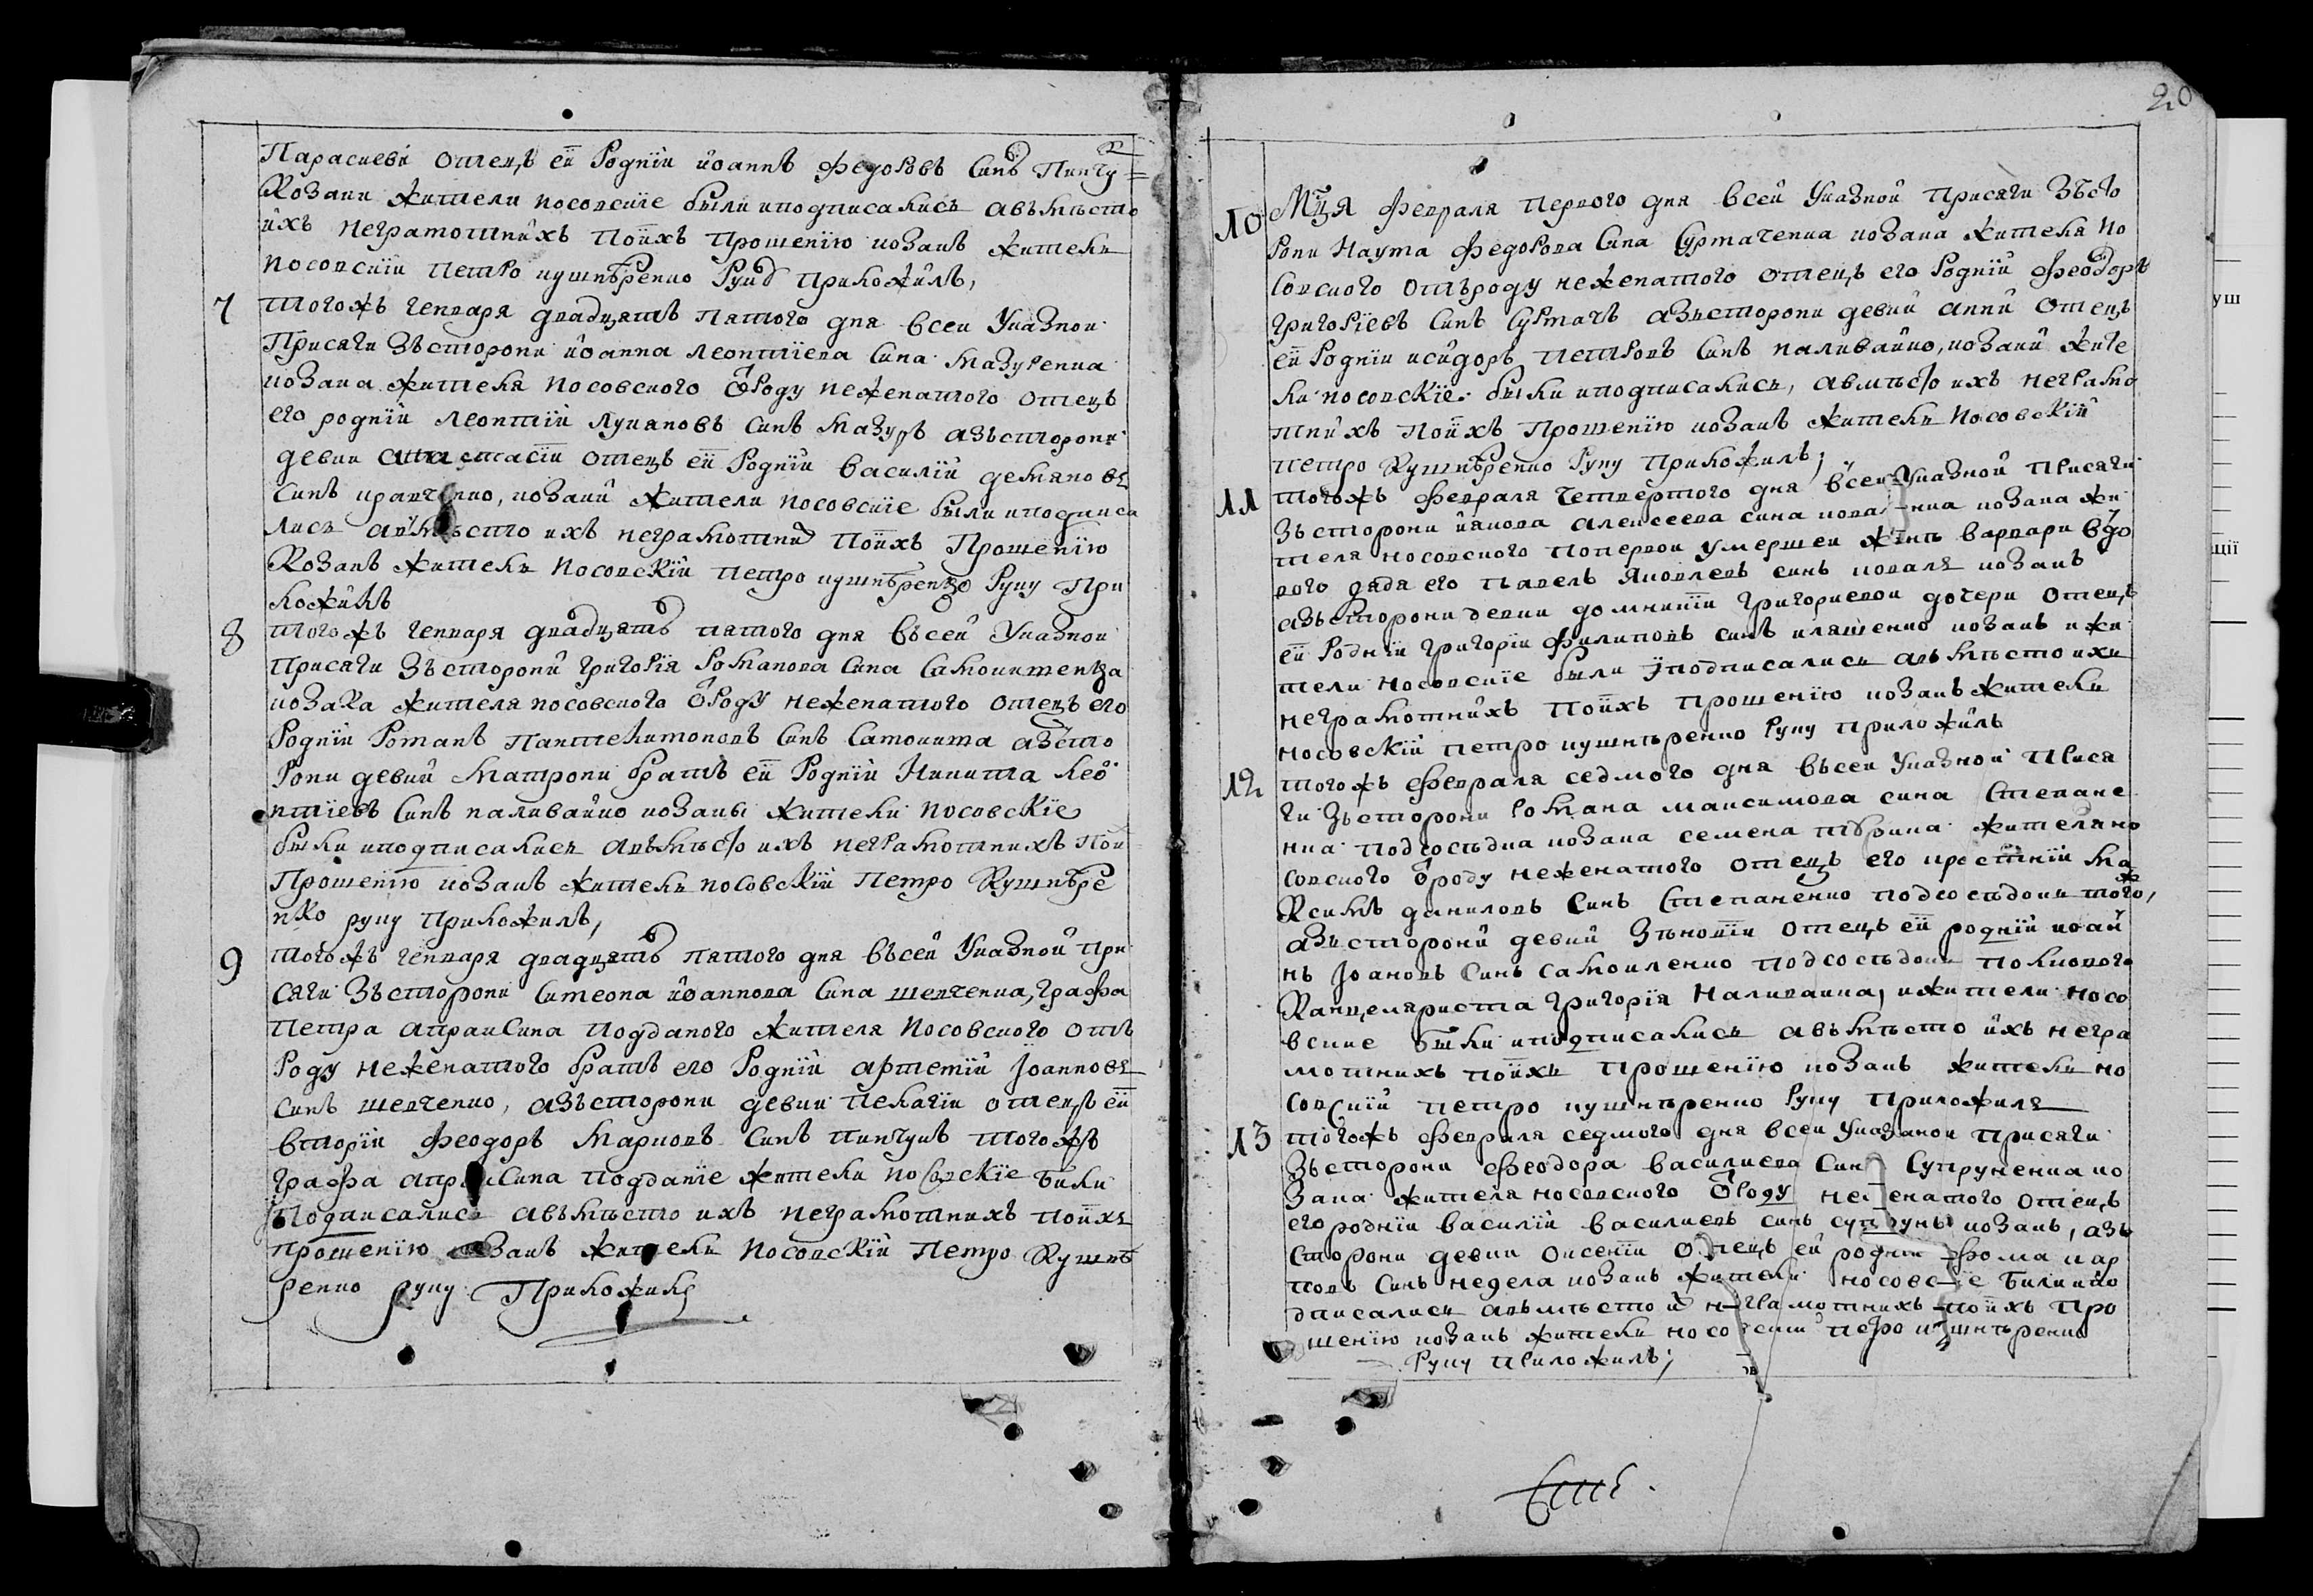 Параскеви отецъ еи̃ Родній иоаннъ Федоровъ Синъ Пинчук
Козаки жители носовские были иподписались авъмѣсто
ихъ Неграмотнихъ Поихъ Прошению козакъ житель
Носовский Петро кушнѣренко Руку Приложилъ,
7 тогожъ генваря двадцять пятого дня всеи Указнои
Присяги Зъсторони иоанна леонтиева Сина мазуренка
козака жителя носовского ѿРоду неженатого отецъ
его роднiй леонтiй лукяновъ синъ мазуръ азъсторони
девки анастасiи отецъ еи Роднiй василiй демяновъ
Синъ кравченко, козаки жители носовскiе были иподписа
лись авмѣсто ихъ неграмотних Поихъ Прошенiю
Козакъ житель Носовскiй Петро кушнѣренко Руку При
ложилъ
8 тогожъ генваря двадцять пятого дня въсей Указнои
Присяги Зъсторони григорiя Романова Сина Самокитенка
козака жителя носовского ѿРоду неженатого отецъ его
Роднiй Романъ Пантелимоновъ Синъ Самокита азъсто
Рони девки матрони братъ еи Роднiй Никита лео
нтiевъ Синъ наливайко козаки жители носовскiе
были иподписались авъмѣсто ихъ неграмотнихъ Пои
Прошенiю козакъ житель носовскiй Петро Кушнѣре
нко руку приложилъ,
9 тогожъ генваря двадцять пятого дня въсей Указной При
сяги Зъсторони Симеона иоаннова Сина шевченка, графа
Петра апраксина подданого жителя Носовского отъ
Роду неженатого братъ его Роднiй артемiй Iоанновъ
синъ шевченко, азъсторони девки пелагiи отецъ еи
вторiй Феодоръ марковъ Синъ пинчукъ тогожъ
графа апраксина подданiе жители носовскiе били
иподписались авъмѣсто ихъ неграмотнихъ поихъ
прошенiю козакъ житель Носовскiй Петро Кушнѣ
ренко руку Приложилъ
20
10 Мця февраля первого дня всей Указной присяги Зъсто
Рони Наума Федорова Сина Сурмаченка козака жителя Но
совского отъроду неженатого отецъ его Роднiй Феодоръ
григорiевъ синъ Сурмачъ азъсторони девки анни отецъ
еи Роднiй исидоръ петровъ Синъ наливайко, козаки жите
ли носовскiе были иподписались, авмѣсто ихъ неграмо
тнихъ поихъ Прошенiю козакъ житель Носовскiй
петро Кушнѣренко Руку Приложилъ,
11 тогожъ февраля четвертого дня всей Указной присяги
Зъсторони иякова алексеева сина коваленка козака жи
теля носовского попервой умершей женѣ варвари вдо
вого дядя его павелъ Яковлевъ синъ коваль козакъ
азъсторони девки домникiи григориевой дочери отецъ
еи Роднiй григорiй Филиповъ синъ иляшенко козакъ ижи
тели носовскiе были иподписались авъмѣсто ихъ
неграмотнихъ поихъ прошенiю козакъ житель
носовскiй петро кушнѣренко Руку приложилъ
12 тогожъ февраля седмого дня въсеи Указной Прися
ги Зъсторони Романа максимова сина Степане
нка подсосѣдка козака семена жителя но
совского ѿроду неженатого отецъ его ма
Ксимъ даниловъ Синъ Степаненко подсосѣдокъ тогож,
азъсторони девки Зѣновiи отецъ еи роднiй
нъ Iоановъ Синъ самоиленко подсосѣдокъ полкового
Канцеляриста григорiя Наливайка, ижители носо
вские были иподписались авъмѣсто ихъ негра
мотнихъ поихъ прошенiю козакъ житель но
совскiй петро кушнѣренко Руку Приложилъ
13 тогожъ февраля седмого дня всеи Указаной Присяги
Зъсторони Феодора василиева Сина Супруненка ко
зака жителя носовского ѿРоду неженатого отецъ
его роднiй василiй василиевъ синъ супрунъ козакъ, азъ
Сторони девки оксенiи отецъ ей роднiй Фома кар
повъ Синъ недела козакъ жители носовскiе били ипо
дписались авъмѣсто их неграмотнихъ поихъ про
шенiю козакъ житель носовский петро кушнѣренко
Руку приложилъ;